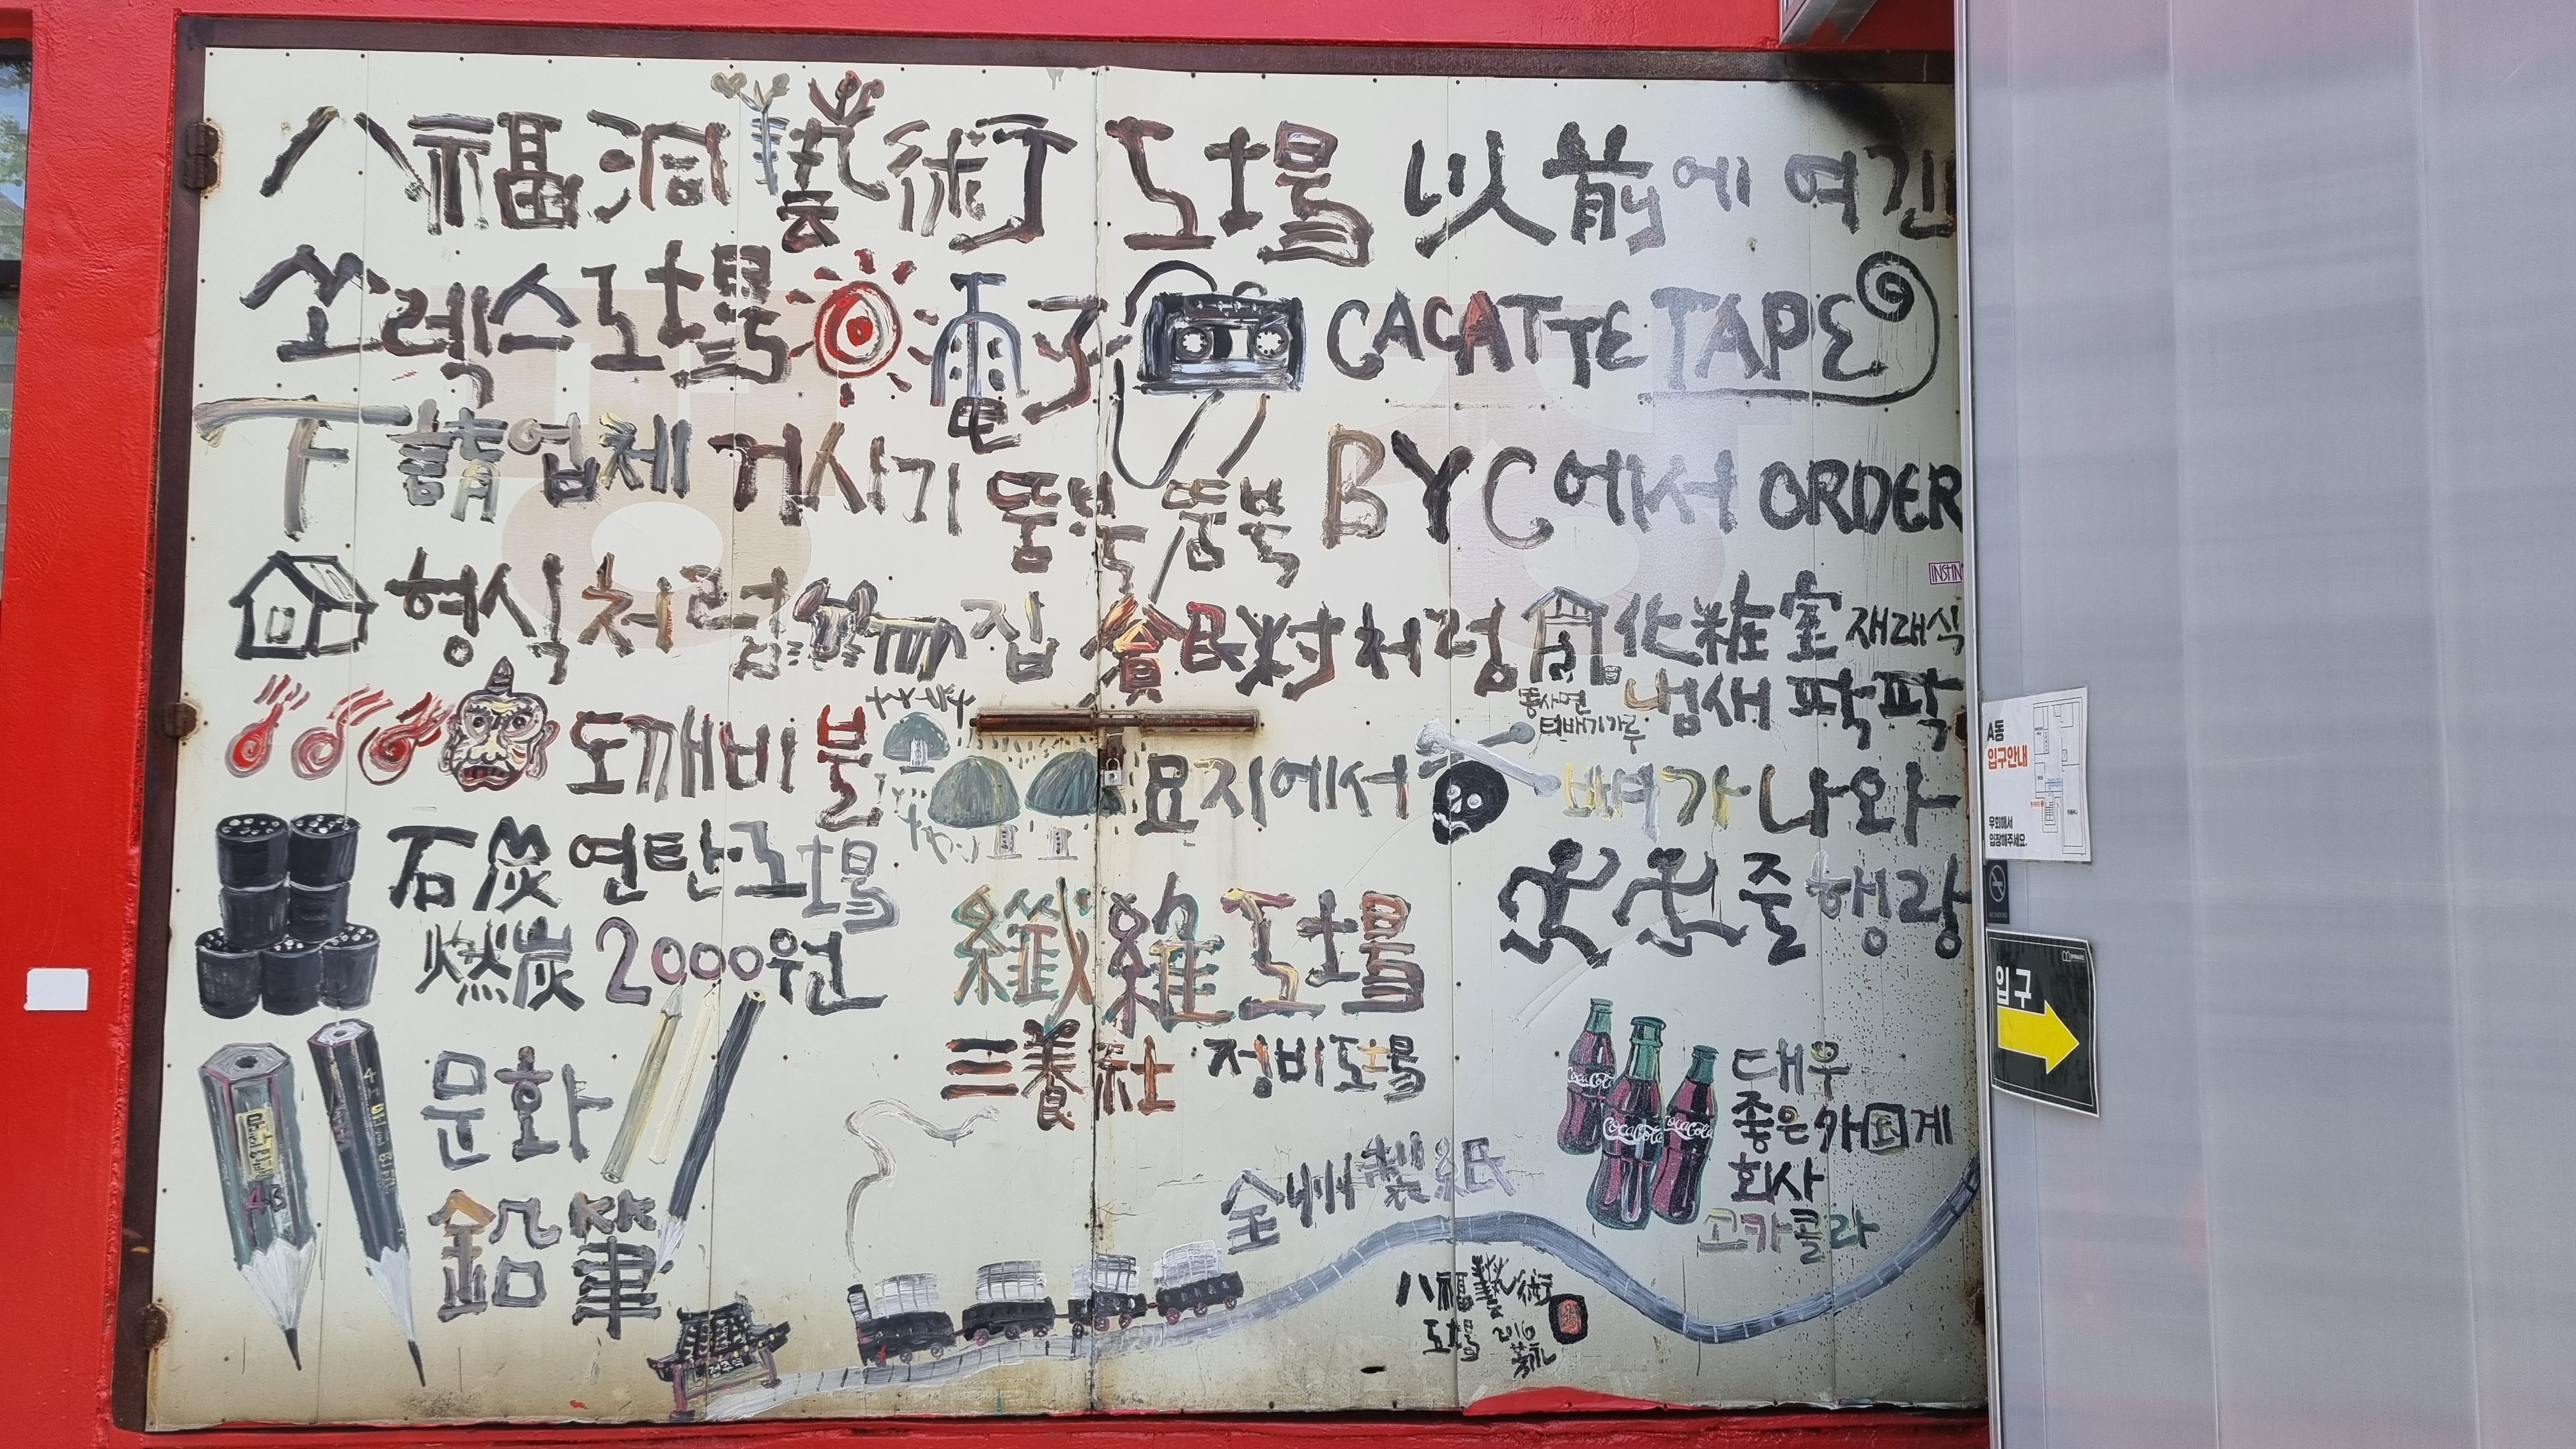 八福洞藝術工場 以前에 여긴
쏘렉스工場 電子 CACATTE TAPE
下請업체 거사기 뚱북 뚱북 BYC에서 ORDER
형식처럼 집 貧民村처럼 化粧室 재래식
냄새 팍팍
도깨비불 묘지에서 뼈가 나와
石炭 연탄工場 줄행랑
燃炭 2000원 纖維工場
三養社 정비工場
문화
鉛筆
全州製紙
CocaCola
CocaCola
CocaCola
대우
좋은 기계
회사
코카콜라
八福藝術
工場 2016
4B
전주역
A동
입구안내
우회해서
입장해주세요.
입구